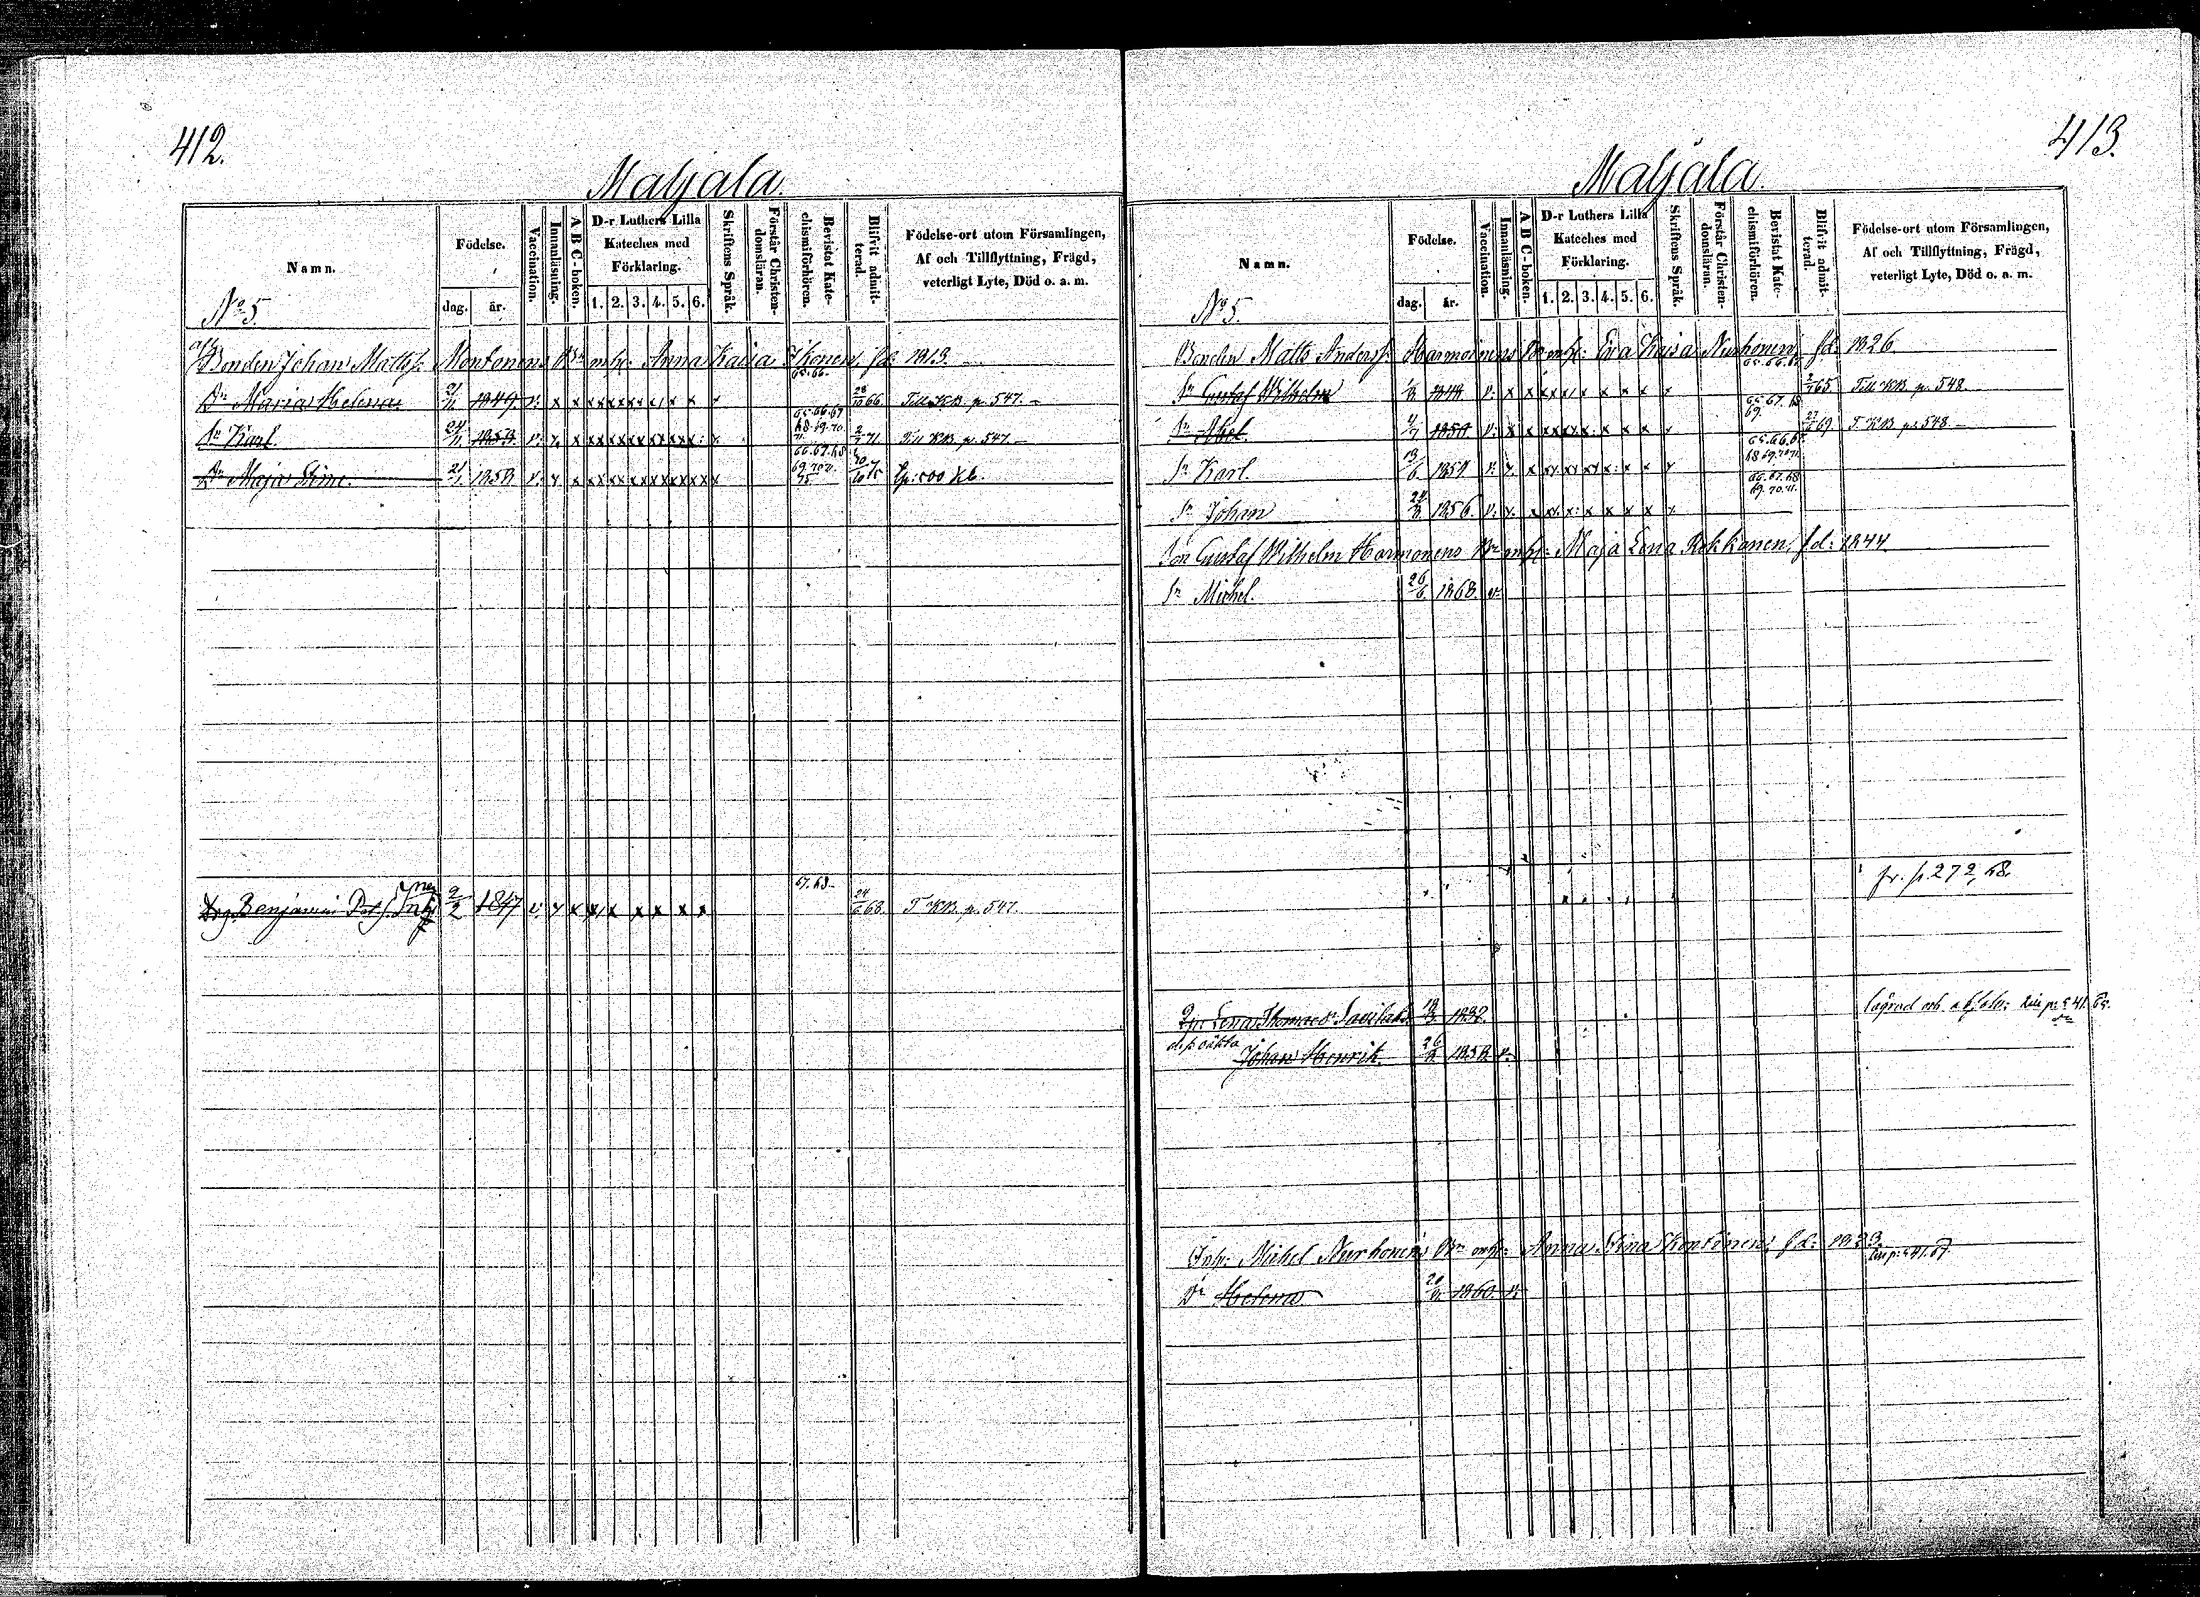 412.
Maljala.
Namn.
Födelse.
dag.
år.
Vaccination.
Innanläsning.
A B C-boken.
D-r Luthers Lilla
Kateches med
Förklaring.
1. 2. 3. 4. 5. 6.
Skriftens Språk.
Förstår Christen-
domsläran.
Bevistat Kate-
chismiförhören.
Blifvit admit-
terad.
Födelse-ort utom Församlingen,
Af och Tillflyttning, Frägd,
veterligt Lyte, Död o. a. m.
No 5.
Bonden Johan Matts: Nontonens Bn m h: Anna Kaisa Ihonen, fd: 1813
65.66.
Dr Maria Helena 21/11 1849 v: x x x x x x x x x x x 28/10 66 Till KB p. 547.
65.66.67
68.69.70.
71
Sn Karl 24/11 1853 v: x x x x x x x x x x 2/7 71. Till KB. p. 547.
66.67.68
69.70.71.
75
Dr Maja Stina 21/1 1858 v: x x x x x x x x x x x
67.68
Drg Benjamin 2/2 1847 v: x x x x x x x x 24/6 68. T KB. p. 547.
413.
Maljala.
Namn.
Födelse.
dag.
år.
Vaccination.
Innanläsning.
A B C-boken.
D-r Luthers Lilla
Kateches med
Förklaring.
1. 2. 3. 4. 5. 6.
Skriftens Språk.
Förstår Christen-
domsläran.
Bevistat Kate-
chismiförhören.
Blifvit admit-
terad.
Födelse-ort utom Församlingen,
Af och Tillflyttning, Frägd,
veterligt Lyte, Död o. a. m.
No 5.
Bonden Matts Anders: Harmoinens Bn m h: Eva Kaisa Nurhonen fd: 1826
Sn Gustaf Wilhelm 1848 v: x x x x x x x x x 65 Till KB p. 548
65.67.68
69.
Sn Abel 1850 v: x x x x x x x x x 27/6 69 T. KB p: 548
65.66.67.
68.69.70.71
Sn Karl 13/6. 1854 v: x x x x x x x x
66.67.68
69.70.71.
Sn Johan 24/8. 1856. v: x x x x x x x x
Son Gustaf Wilhelm Harmonens Bn m h: Maja Lena Rekkonen, fd: 1844
Sn Michel. 26/6. 1868. v:
fr. p 272, 68.
Lena Thomasdr 18/3 1832.
d:s oäkta
Johan Henrik. 26/8 1858 v:
Inh: Michel Nurhonens Bn m h: Anna Stina Kontinen, fd: 1823.
Dr Helena 1860 v: